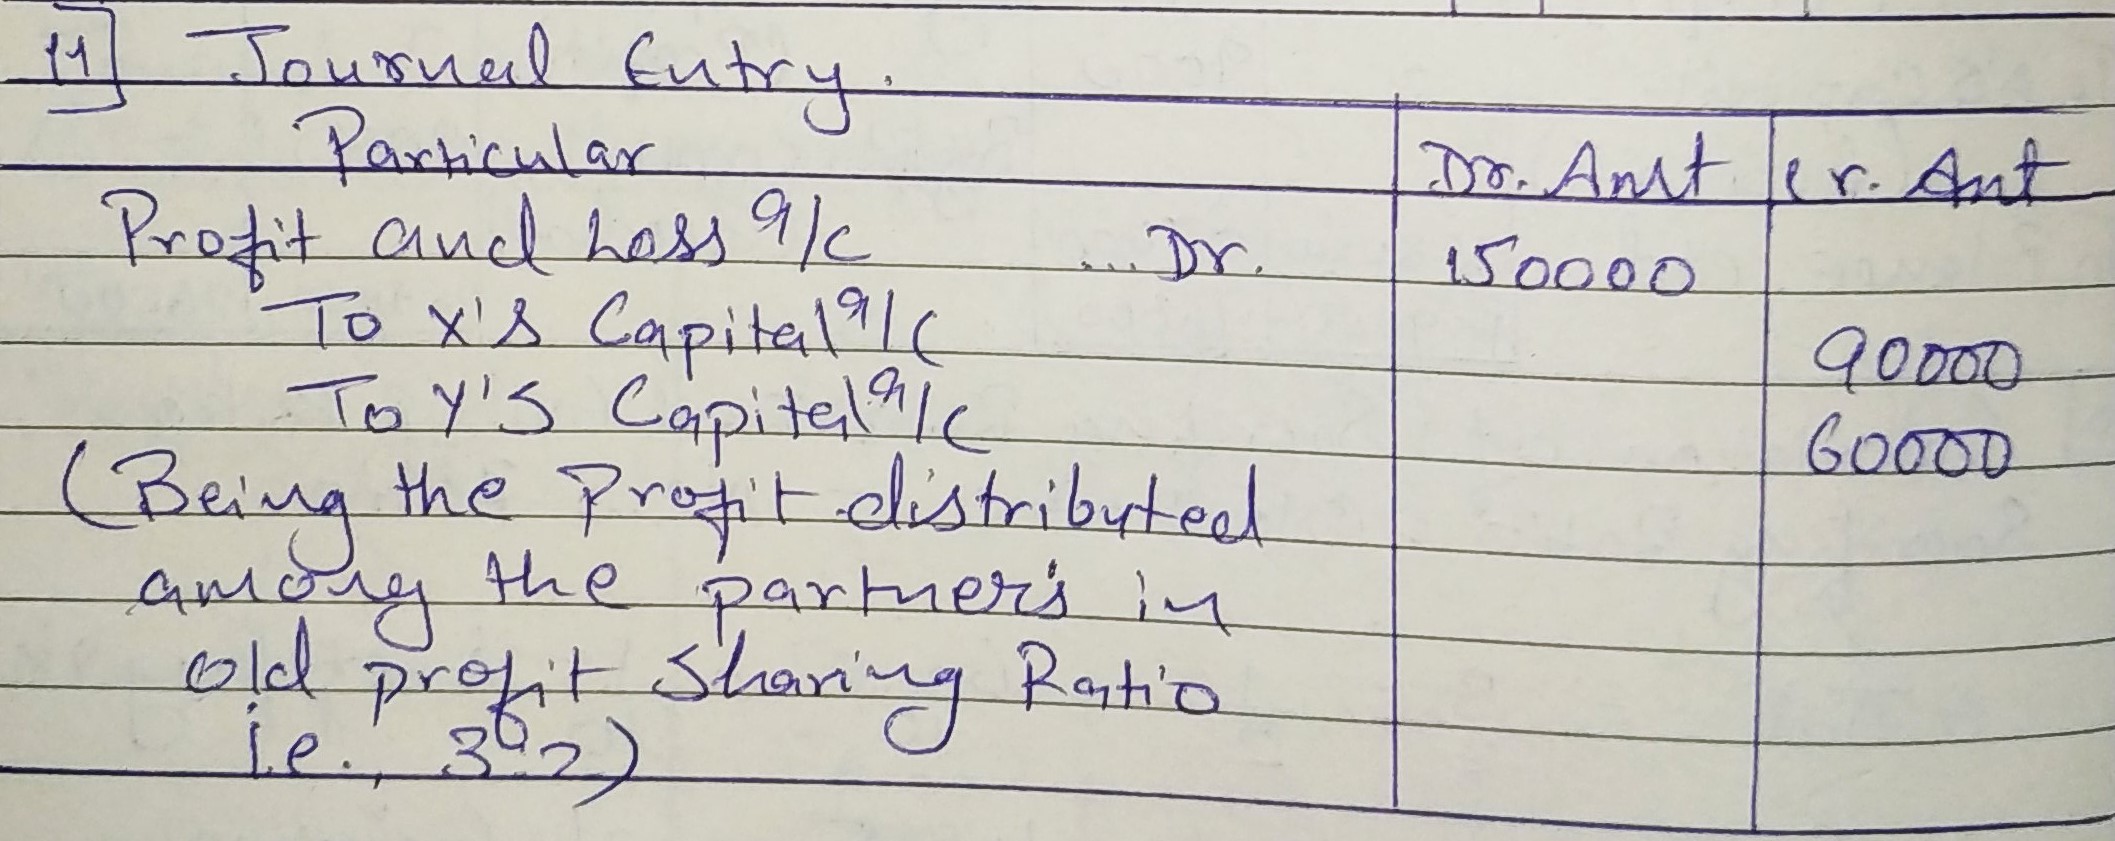 11] Journal Entry.
Particular Dr. Amt Cr. Amt
Profit and Loss a/c ... Dr. 150000
To X's Capital a/c 90000
To Y's Capital a/c 60000
(Being the Profit distributed
among the partner's in
old profit Sharing Ratio
i.e., 3:2)